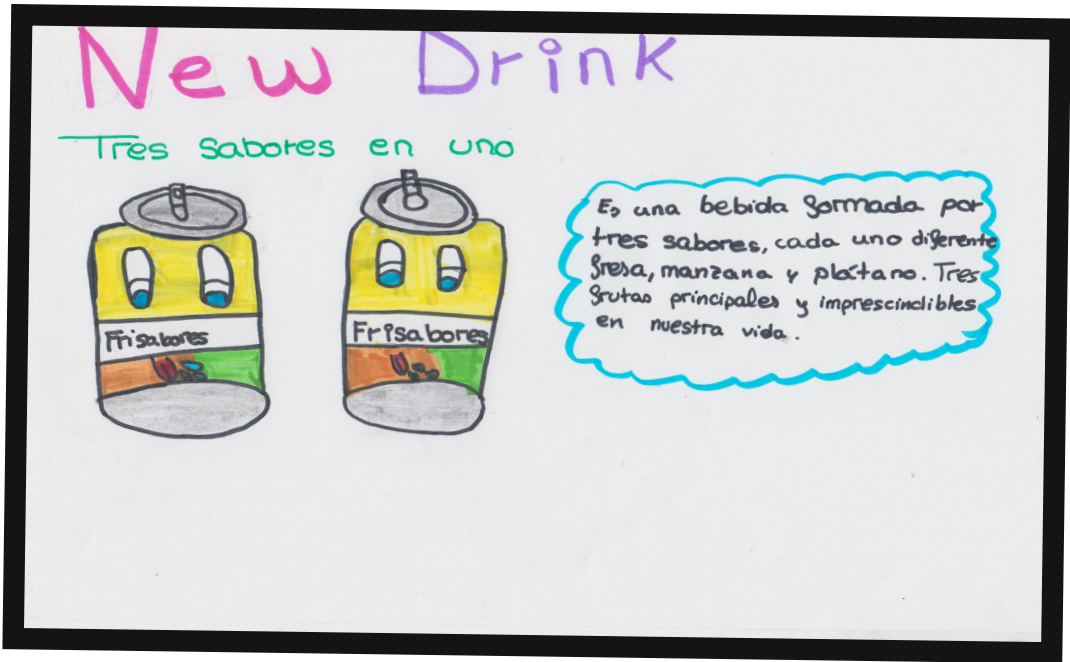 New Drink
Tres sabores en uno
Frisabores
Frisabores
Es una bebida formada por
tres sabores, cada uno diferente
fresa, manzana y plátano. Tres
frutas principales y imprescindibles
en nuestra vida.